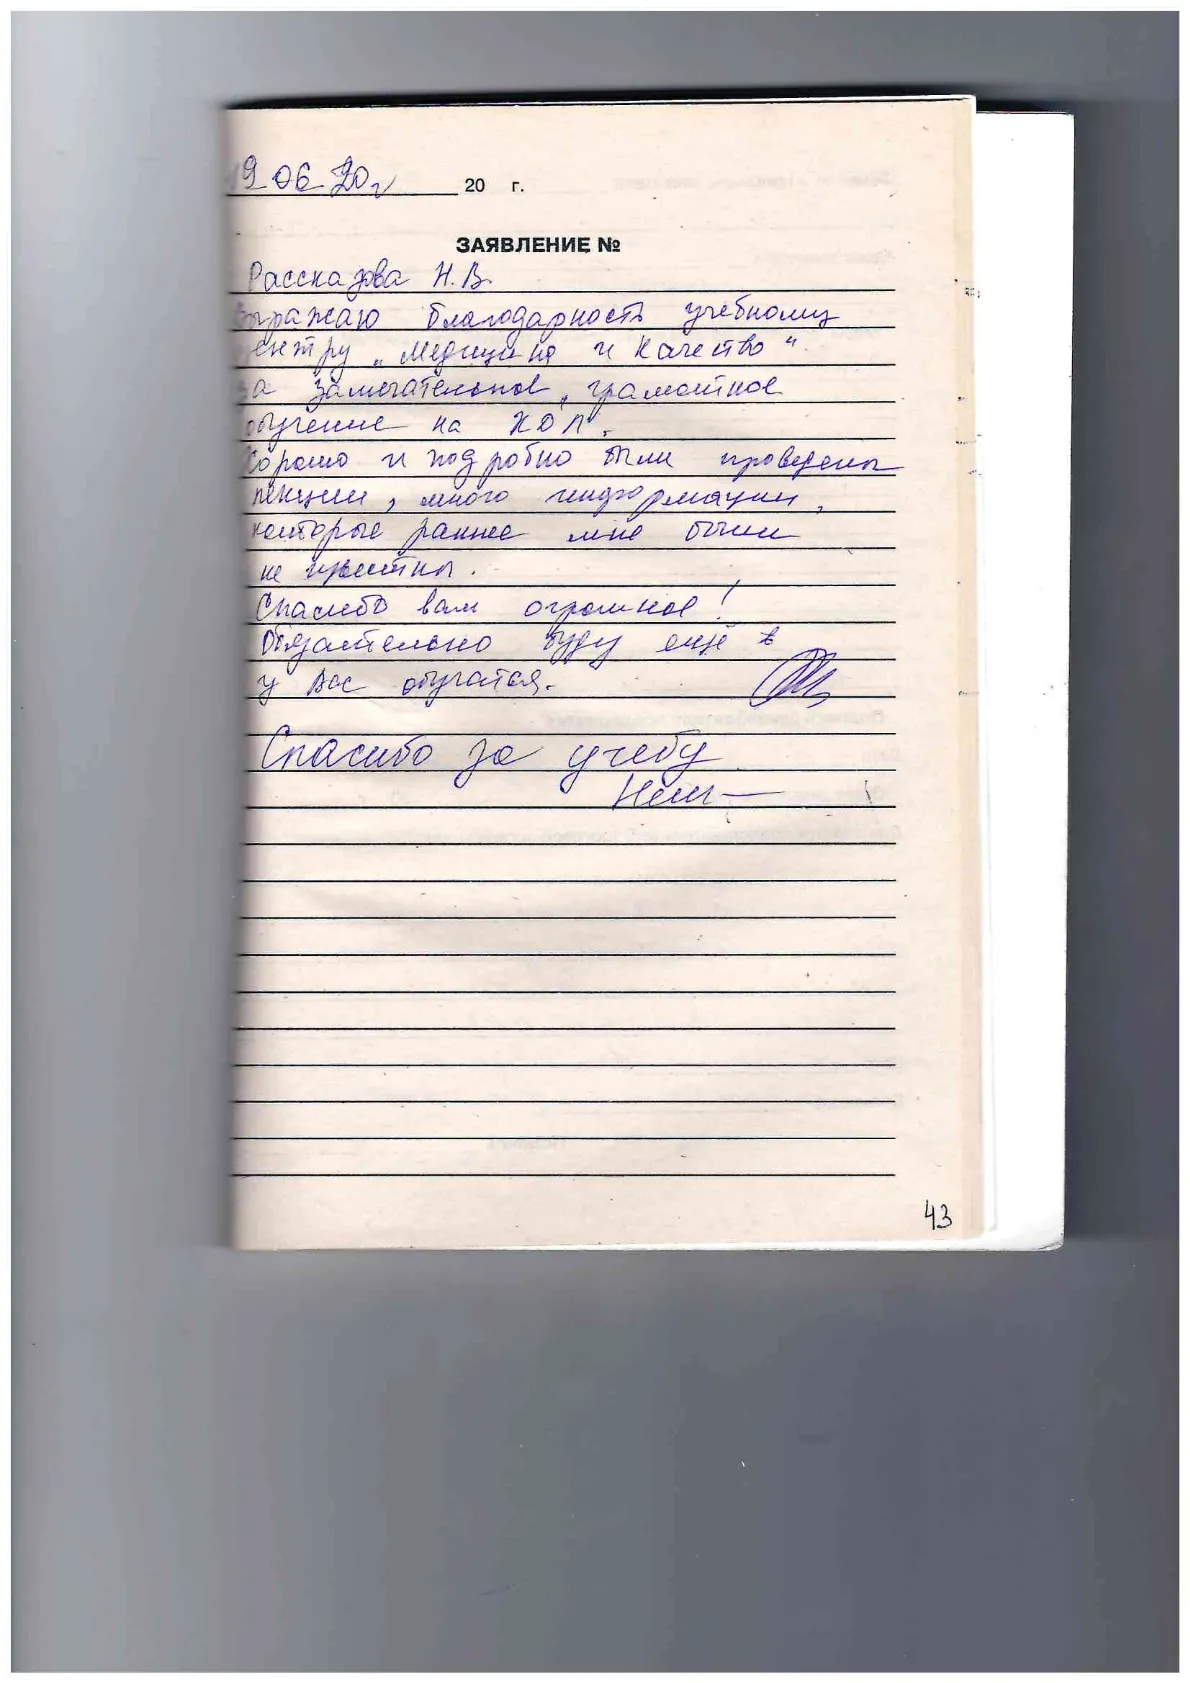 19 06 20г 20 г.
ЗАЯВЛЕНИЕ №
Рассказова Н.В.
Выражаю благодарность учебному
центру „Медицина и Качество"
за замечательное, грамотное
обучение на ХОЛ.
Хорошо и подробно были проведены
лекции, много информации,
которые раннее мне были
не известны.
Спасибо вам огромное!
Обязательно буду ещё
у вас обучатся.
Спасибо за учебу
43